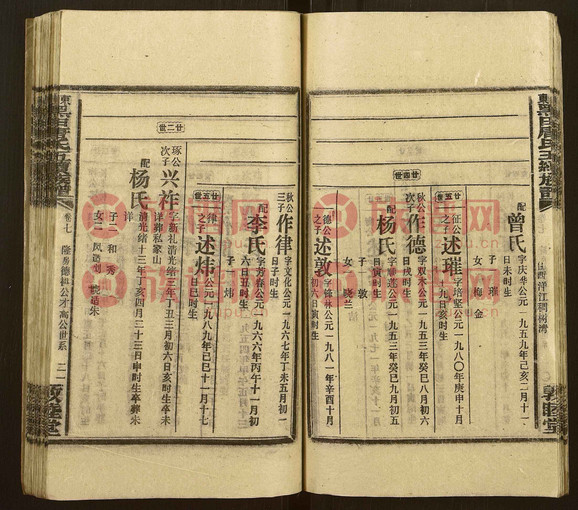 配
曾氏
字庆华公元一九五九年己亥二月十一
日未时生
子 璀
女 梅 金
廿五世
征公
之子
述璀
字培坚公元一九八〇年庚申十月
十九日亥时生
廿四世
秋公
次子
作德
字双木公元一九五三年癸巳八月初六
日戌时生
配
杨氏
公元一九五三年癸巳九月初五
日寅时生
子 敦
女 晓兰
德公
之子
述敦
字锋林公元一九八一年辛酉十月
初六日寅时生
秋公
三子
作律
字文化公元一九六七年丁未五月初一
日子时生
配
李氏
字芳春公元一九六六年丙午十一月初
六日丑时生
子 炜
廿五世
律
之子
述炜
公元一九八九年己巳十一月十七
日巳时生
廿二世
琢公
次子
兴祚
字新礼清光绪三年丁丑三月初六日亥时生卒未
详葬私家山
配
杨氏
清光绪十三年丁亥四月二十三日申时生卒葬未
详
子二 和 秀
女二 凤适刘 适朱
卷七
隆房德拱公才高公世系
二一
敦睦堂